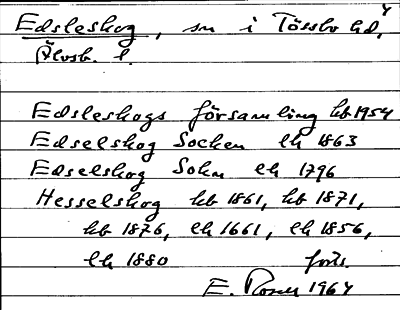 Edsleskog, sn i Tössbo hd,
Älvsb. l.
Edsleskogs församling kb 1954
Edselskog Socken lh 1863
Edselskog Sokn lh 1796
Hesselskog kb 1861, kb 1871,
kb 1876, lh 1661, lh 1856,
lh 1880 forts.
E. 1964